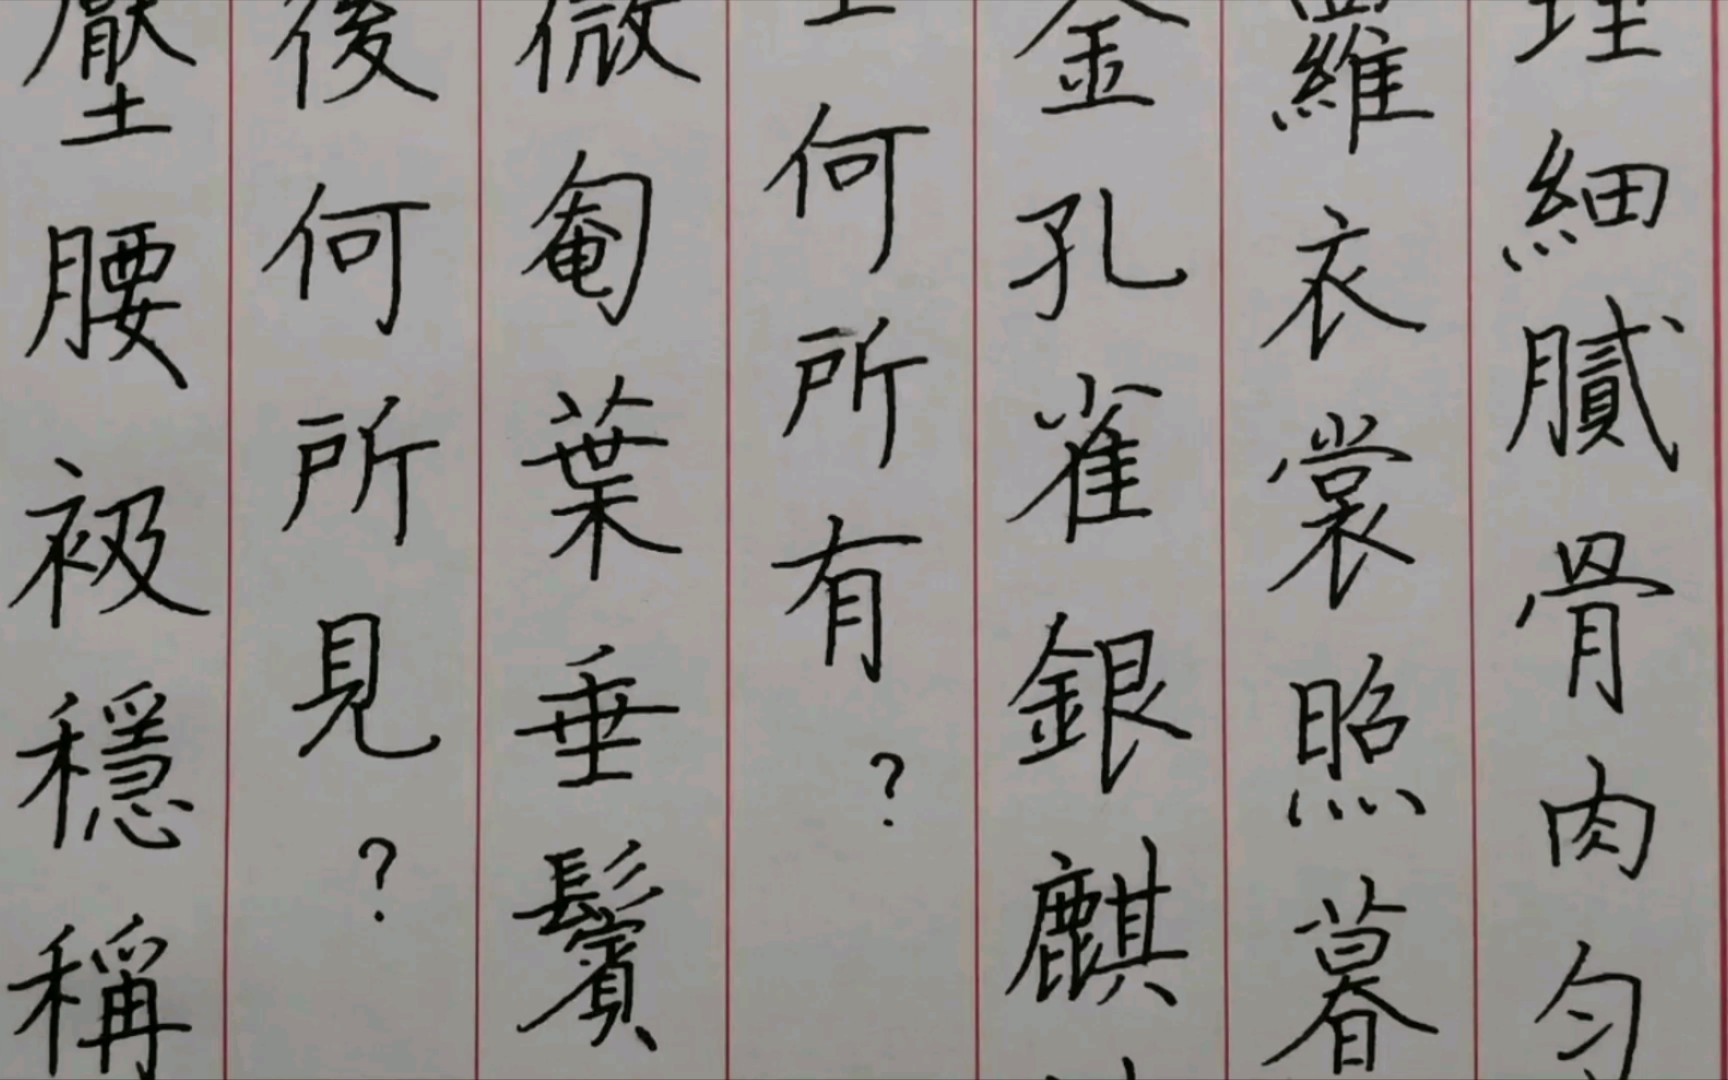 理細膩骨肉匀
羅衣裳照暮
金孔雀銀麒
何所有？
微㔩葉垂鬢
後何所見？
壓腰衱穩稱